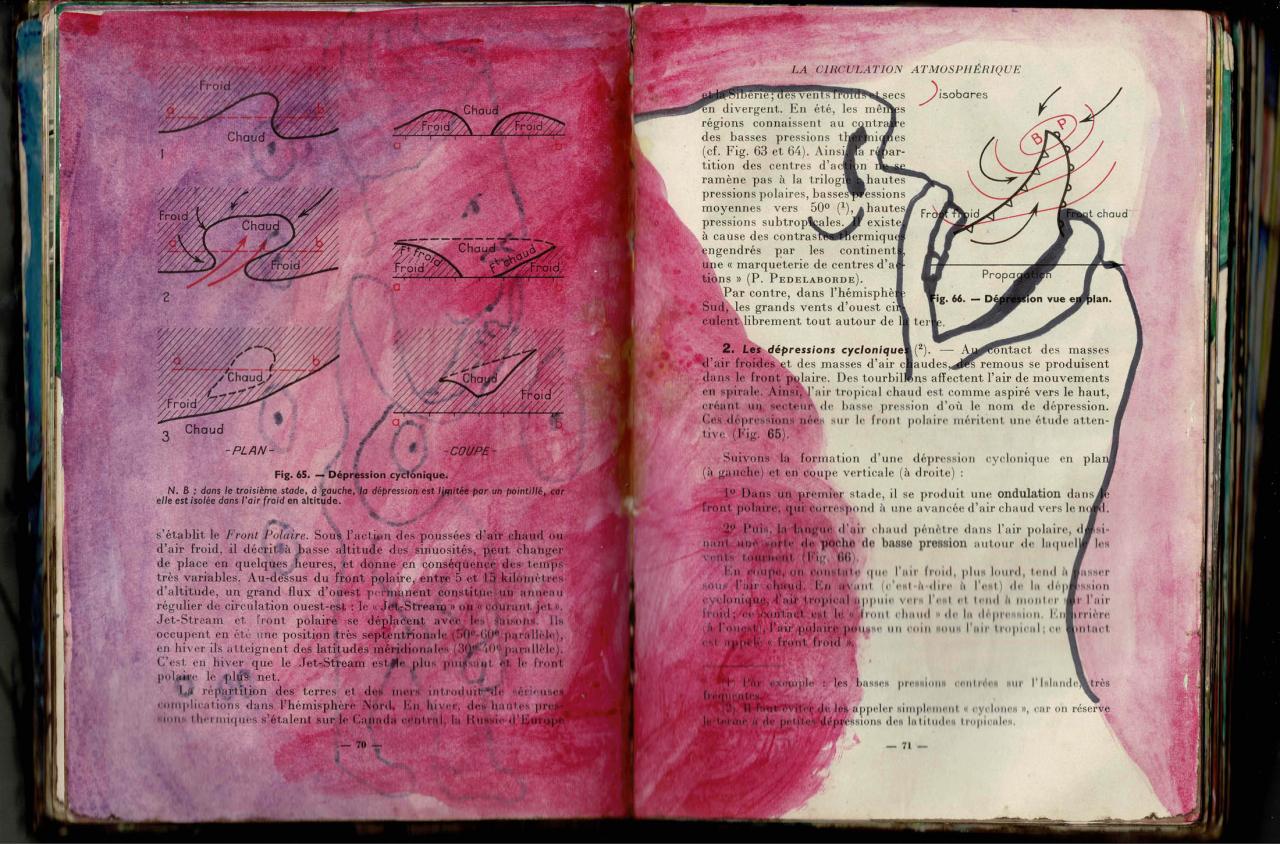 Froid
a
b
Chaud
1
Chaud
Froid
Froid
a
b
Froid
Chaud
a
b
Froid
2
Chaud
Ft froid
Ft chaud
Froid
Froid
a
b
a
b
Chaud
Froid
3
Chaud
Chaud
Froid
a
b
-PLAN-
-COUPE-
Fig. 65. — Dépression cyclonique.
N. B : dans le troisième stade, à gauche, la dépression est limitée par un pointillé, car
elle est isolée dans l'air froid en altitude.
s'établit le Front Polaire. Sous l'action des poussées d'air chaud ou
d'air froid, il décrit à basse altitude des sinuosités, peut changer
de place en quelques heures, et donne en conséquence des temps
très variables. Au-dessus du front polaire, entre 5 et 15 kilomètres
d'altitude, un grand flux d'ouest permanent constitue un anneau
régulier de circulation ouest-est : le « Jet-Stream » ou « courant jet ».
Jet-Stream et front polaire se déplacent avec les saisons. Ils
occupent en été une position très septentrionale (50°-60° parallèle),
en hiver ils atteignent des latitudes méridionales (30°-40° parallèle).
C'est en hiver que le Jet-Stream est le plus puissant et le front
polaire le plus net.
La répartition des terres et des mers introduit de sérieuses
complications dans l'hémisphère Nord. En hiver, des hautes pres-
sions thermiques s'étalent sur le Canada central, la Russie d'Europe
— 70 —
LA CIRCULATION ATMOSPHÉRIQUE
et la Sibérie ; des vents froids et secs
en divergent. En été, les mêmes
régions connaissent au contraire
des basses pressions thermiques
(cf. Fig. 63 et 64). Ainsi, la répar-
tition des centres d'action ne se
ramène pas à la trilogie : hautes
pressions polaires, basses pressions
moyennes vers 50° (¹), hautes
pressions subtropicales. Il existe
à cause des contrastes thermiques
engendrés par les continents,
une « marqueterie de centres d'ac-
tions » (P. PEDELABORDE).
Par contre, dans l'hémisphère
Sud, les grands vents d'ouest cir-
culent librement tout autour de la terre.
isobares
B P
Front froid
Front chaud
Propagation
Fig. 66. — Dépression vue en plan.
2. Les dépressions cycloniques (²). — Au contact des masses
d'air froides et des masses d'air chaudes, des remous se produisent
dans le front polaire. Des tourbillons affectent l'air de mouvements
en spirale. Ainsi, l'air tropical chaud est comme aspiré vers le haut,
créant un secteur de basse pression d'où le nom de dépression.
Ces dépressions nées sur le front polaire méritent une étude atten-
tive (Fig. 65).
Suivons la formation d'une dépression cyclonique en plan
(à gauche) et en coupe verticale (à droite) :
1° Dans un premier stade, il se produit une ondulation dans le
front polaire, qui correspond à une avancée d'air chaud vers le nord.
2° Puis, la langue d'air chaud pénètre dans l'air polaire, dessi-
nant une sorte de poche de basse pression autour de laquelle les
vents tournent (Fig. 66).
En coupe, on constate que l'air froid, plus lourd, tend à passer
sous l'air chaud. En avant (c'est-à-dire à l'est) de la dépression
cyclonique, l'air tropical appuie vers l'est et tend à monter sur l'air
froid ; ce contact est le « front chaud » de la dépression. En arrière
(à l'ouest), l'air polaire pousse un coin sous l'air tropical ; ce contact
est appelé « front froid ».
1. Par exemple : les basses pressions centrées sur l'Islande, très
fréquentes.
2. Il faut éviter de les appeler simplement « cyclones », car on réserve
le terme à de petites dépressions des latitudes tropicales.
— 71 —